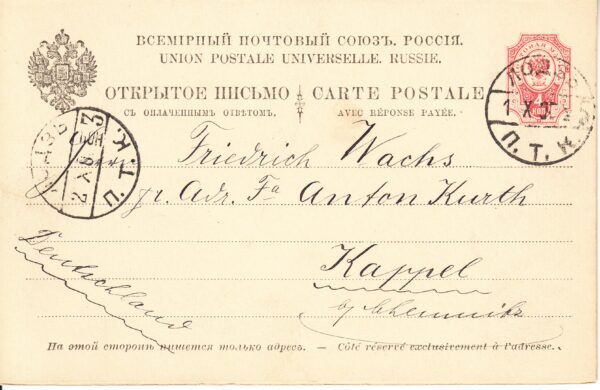 ВСЕМІРНЫЙ ПОЧТОВЫЙ СОЮЗЪ. РОССІЯ.
UNION POSTALE UNIVERSELLE. RUSSIE.
ОТКРЫТОЕ ПИСЬМО
CARTE POSTALE
СЪ ОПЛАЧЕННЫМЪ ОТВѢТОМЪ.
AVEC RÉPONSE PAYÉE.
ЛОДЗЬ
1 X
П. Т. К.
П. Т. К.
Friedrich Wachs
pr. Adr. Fa Anton Kurth
Kappel
by Chemnitz
Deutschland
На этой сторонѣ пишется только адресъ. — Côté réservé exclusivement à l'adresse.